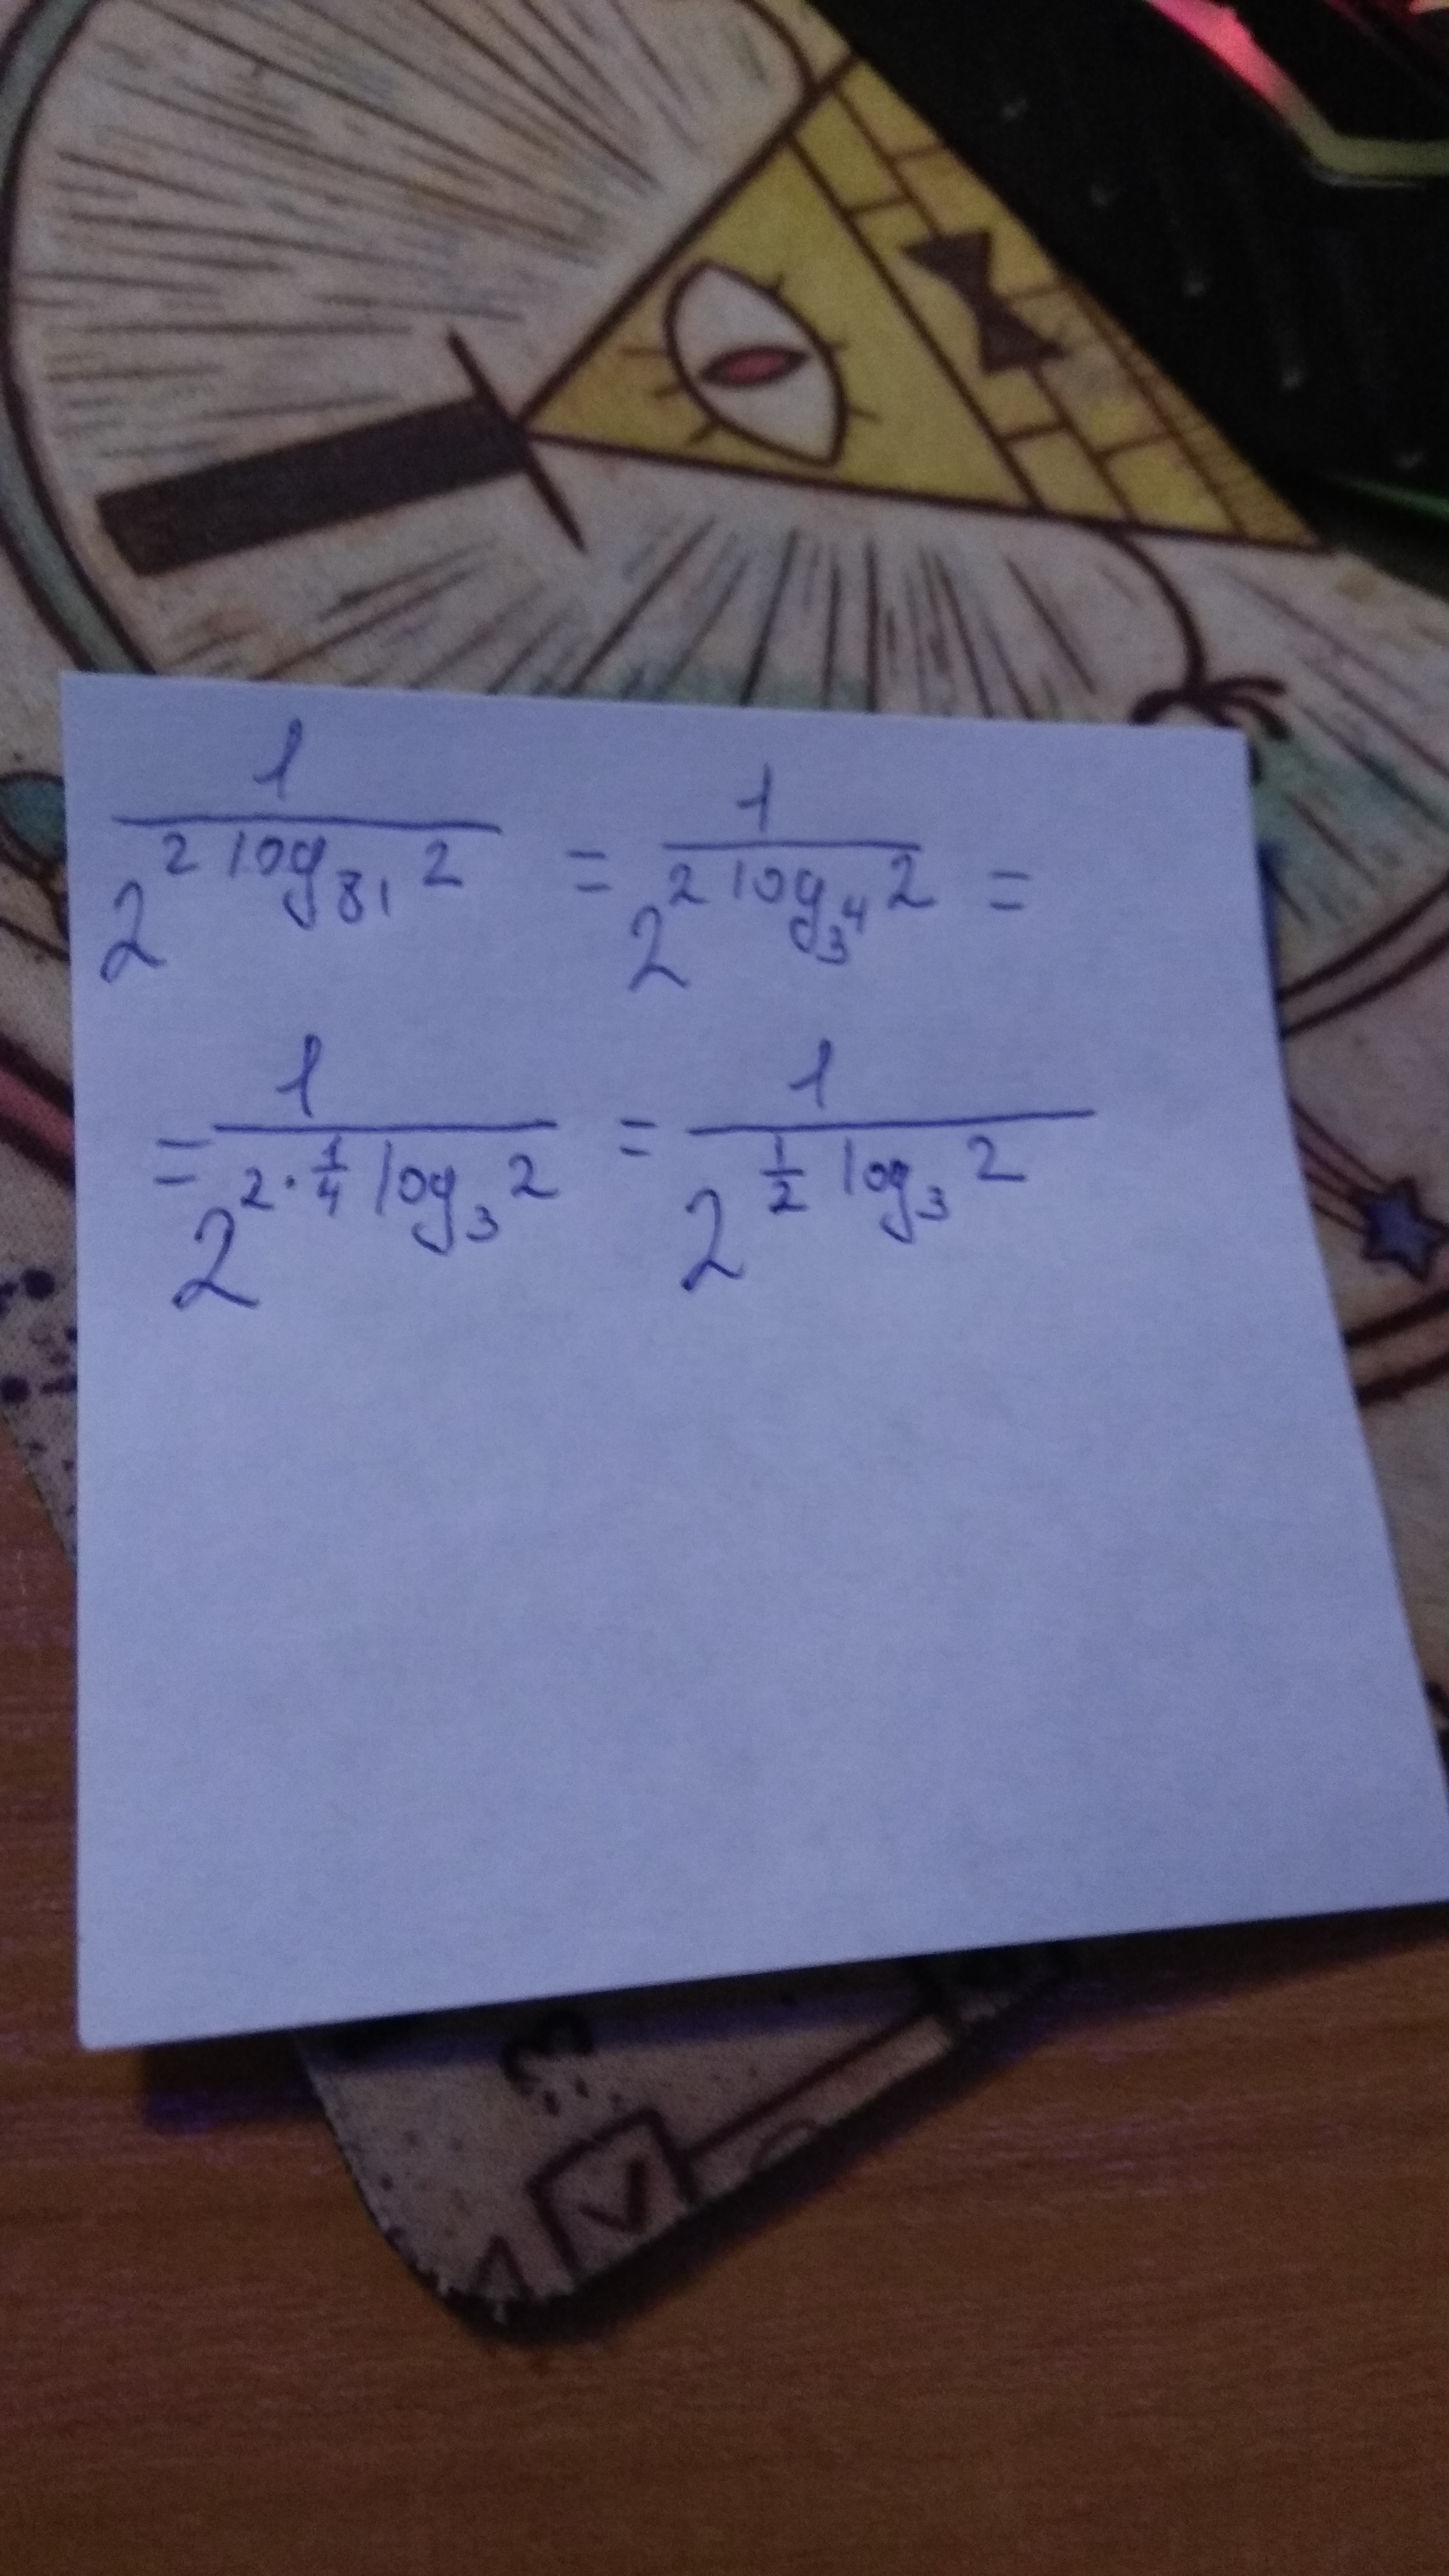 1/(2^(2 log₈₁ 2)) = 1/(2^(2 log_(3^4) 2)) =
= 1/(2^(2·1/4 log₃ 2)) = 1/(2^(1/2 log₃ 2))